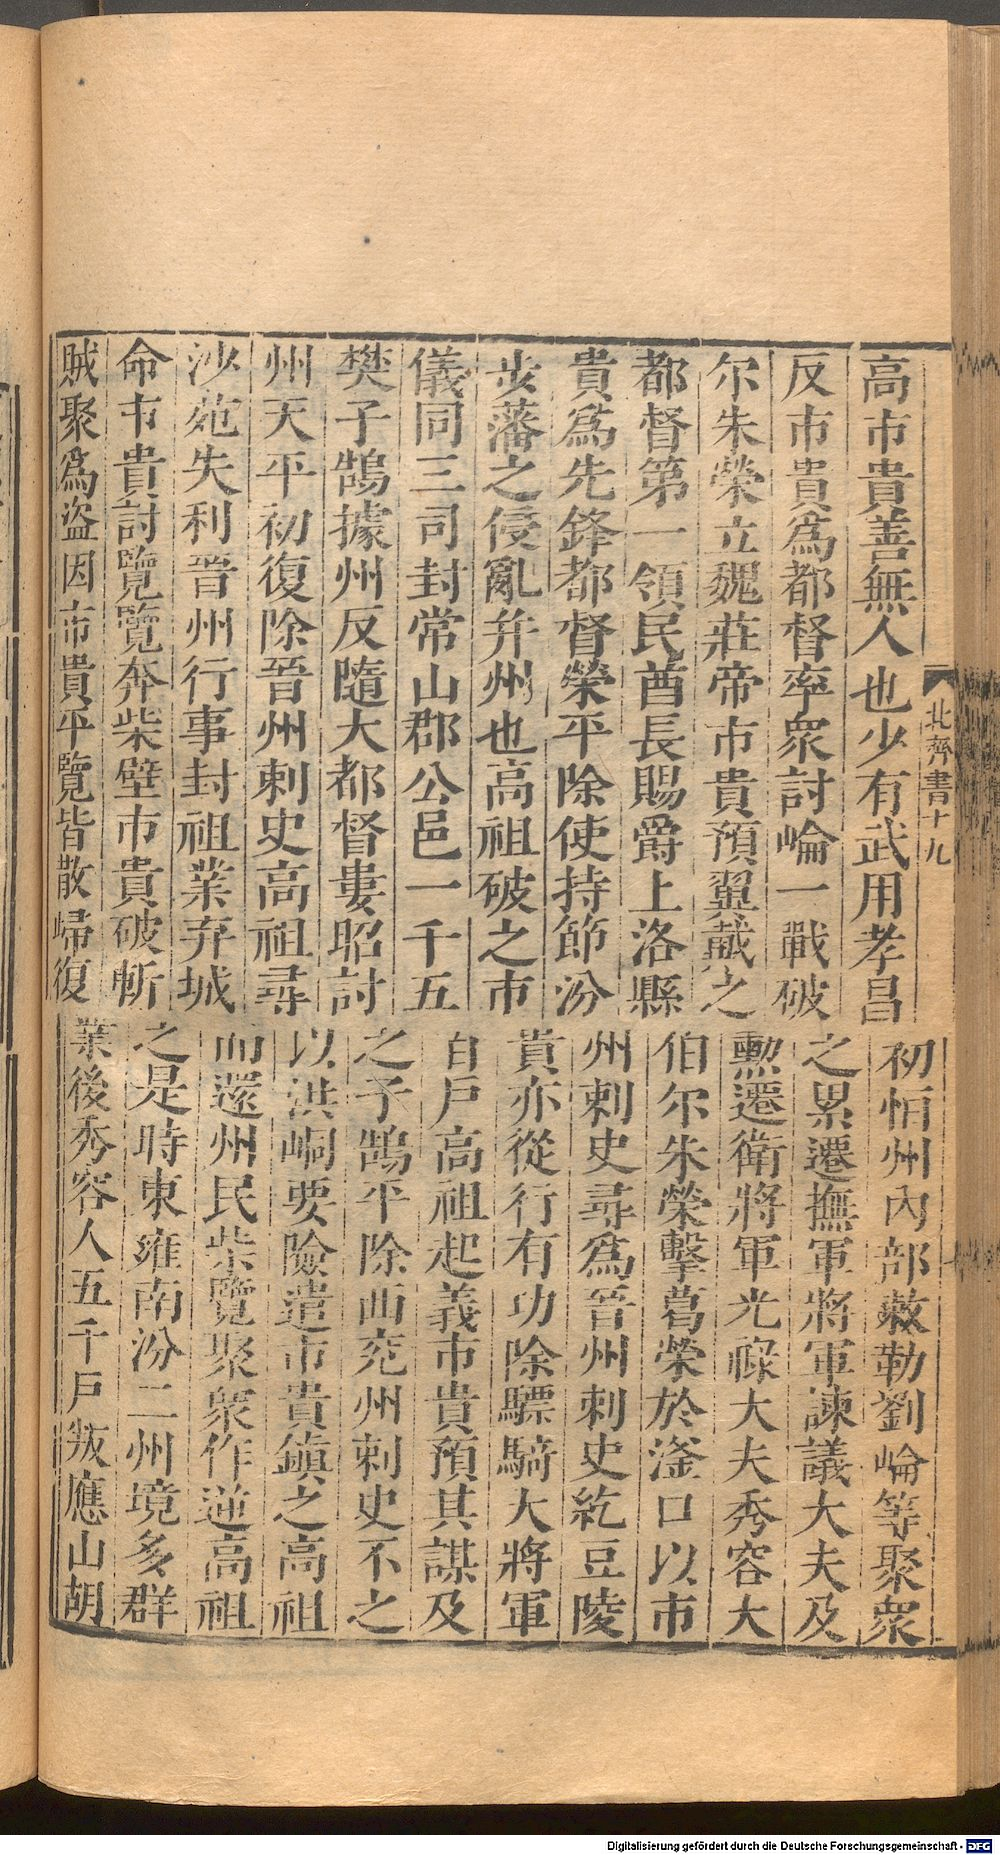 北齊書十九
高市貴善無人也少有武用孝昌初恒州內部敕勒劉崘等聚眾
反市貴爲都督率眾討崘一戰破之累遷撫軍將軍諫議大夫及
尔朱榮立魏莊帝市貴預翼戴之勲遷衛將軍光祿大夫秀容大
都督第一領民酋長賜爵上洛縣伯尔朱榮擊葛榮於滏口以市
貴爲先鋒都督榮平除使持節汾州刺史尋爲晉州刺史紇豆陵
步藩之侵亂并州也高祖破之市貴亦從行有功除驃騎大將軍
儀同三司封常山郡公邑一千五百戶高祖起義市貴預其謀及
樊子鵠據州反隨大都督婁昭討之子鵠平除西兗州刺史不之
州天平初復除晉州刺史高祖尋以洪峒要險遣市貴鎮之高祖
沙苑失利晉州行事封祖業弃城而還州民柴覽聚眾作逆高祖
命市貴討覽覽奔柴壁市貴破斬之是時東雍南汾二州境多群
賊聚爲盜因市貴平覽皆散歸復業後秀容人五千戶叛應山胡
Digitalisierung gefördert durch die Deutsche Forschungsgemeinschaft - DFG